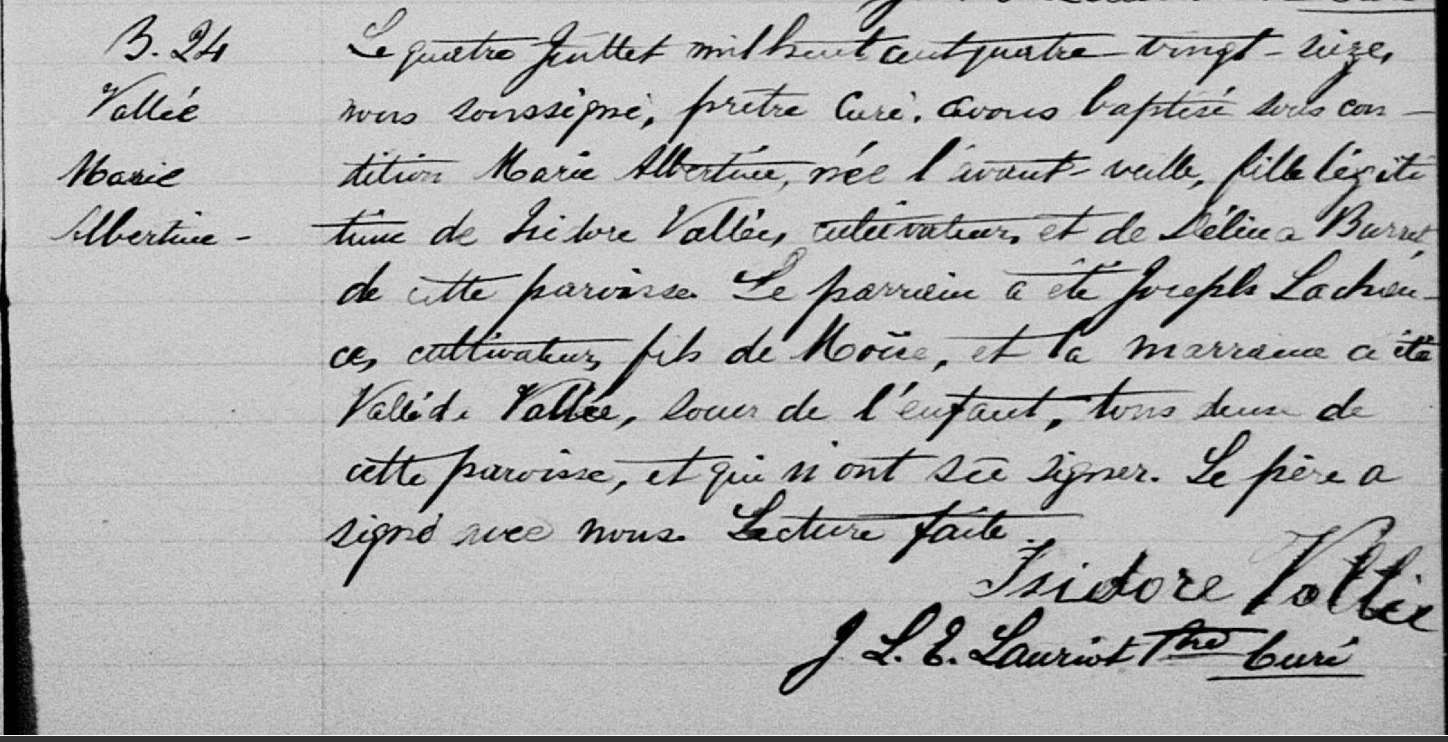 B. 24
Vallée
Marie
Albertine -
Le quatre Juillet mil huit cent quatre-vingt-seize,
nous soussigné, prêtre Curé, avons baptisé sous con-
dition Marie Albertine, née l'avant-veille, fille légiti
time de Isidore Vallée, cultivateur, et de Délina
de cette paroisse. Le parrain a été Joseph Lachan-
ce, cultivateur, fils de Moïse, et la marraine a été
Vallée, soeur de l'enfant, tous deux de
cette paroisse, et qui n'ont su signer. Le père a
signé avec nous. Lecture faite.
Isidore Vallée
J L. E. Lauriot Ptre Curé